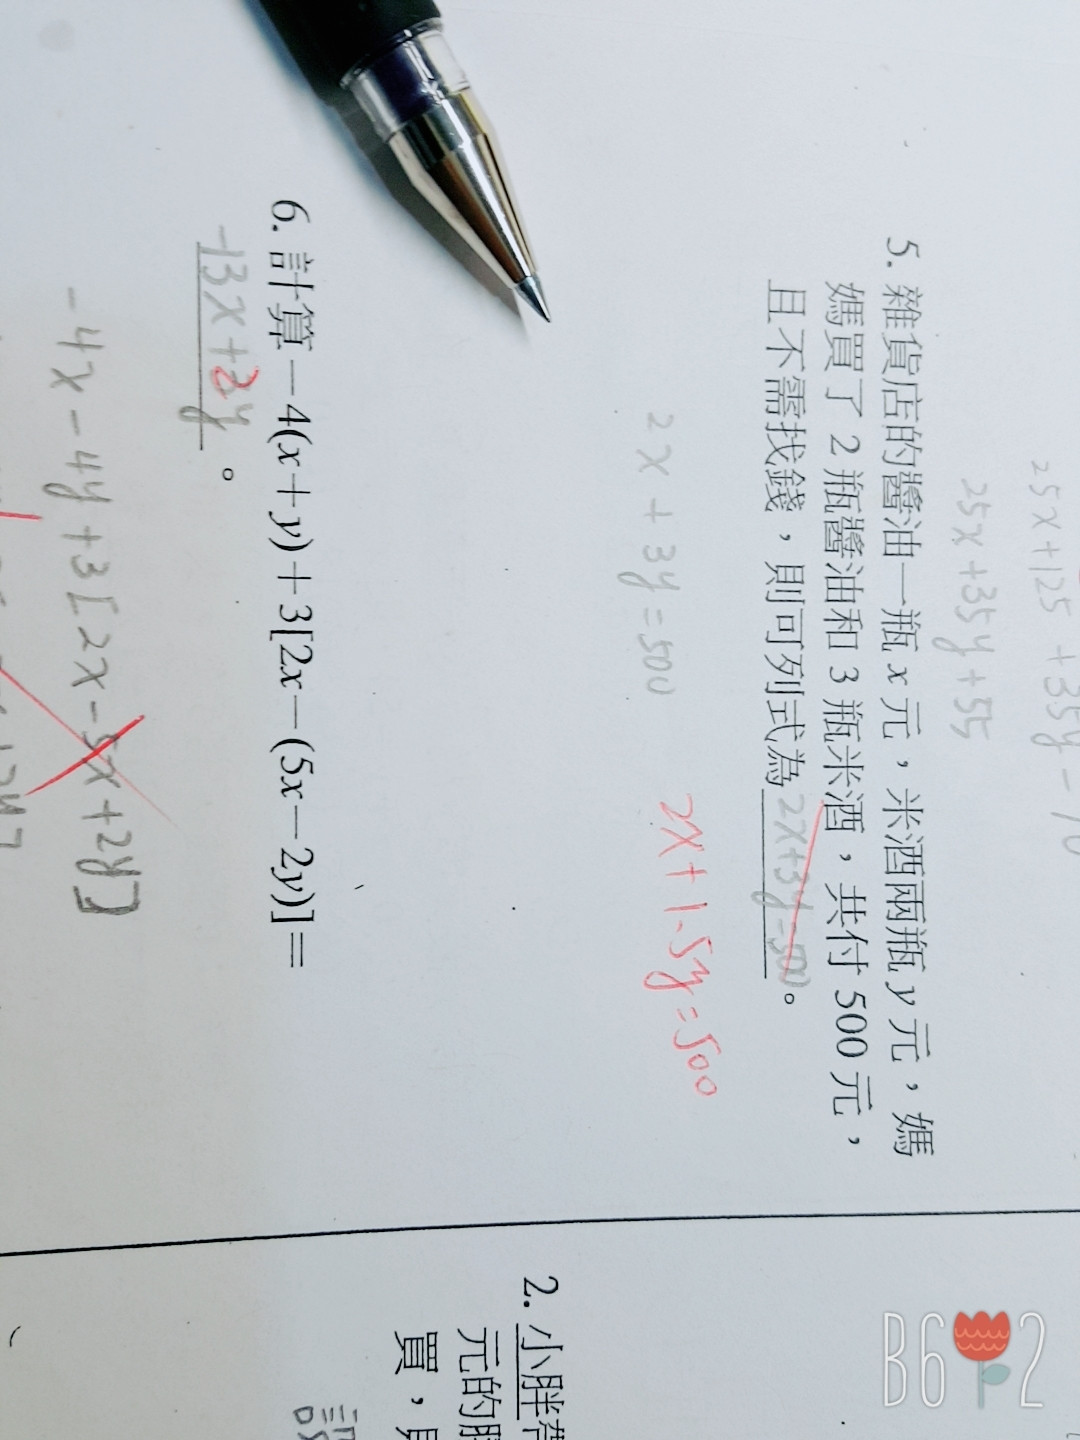 25x+125+35y-10
25x+35y+55
5. 雜貨店的醬油一瓶 x 元，米酒兩瓶 y 元，媽
媽買了 2 瓶醬油和 3 瓶米酒，共付 500 元，
且不需找錢，則可列式為 2x+3y=500 。
2x+3y=500
2x+1.5y=500
6. 計算－4(x＋y)＋3[2x－(5x－2y)]＝
-13x+2y 。
-4x-4y+3[2x-5x+2y]
2. 小胖
元的
買，
B6 2